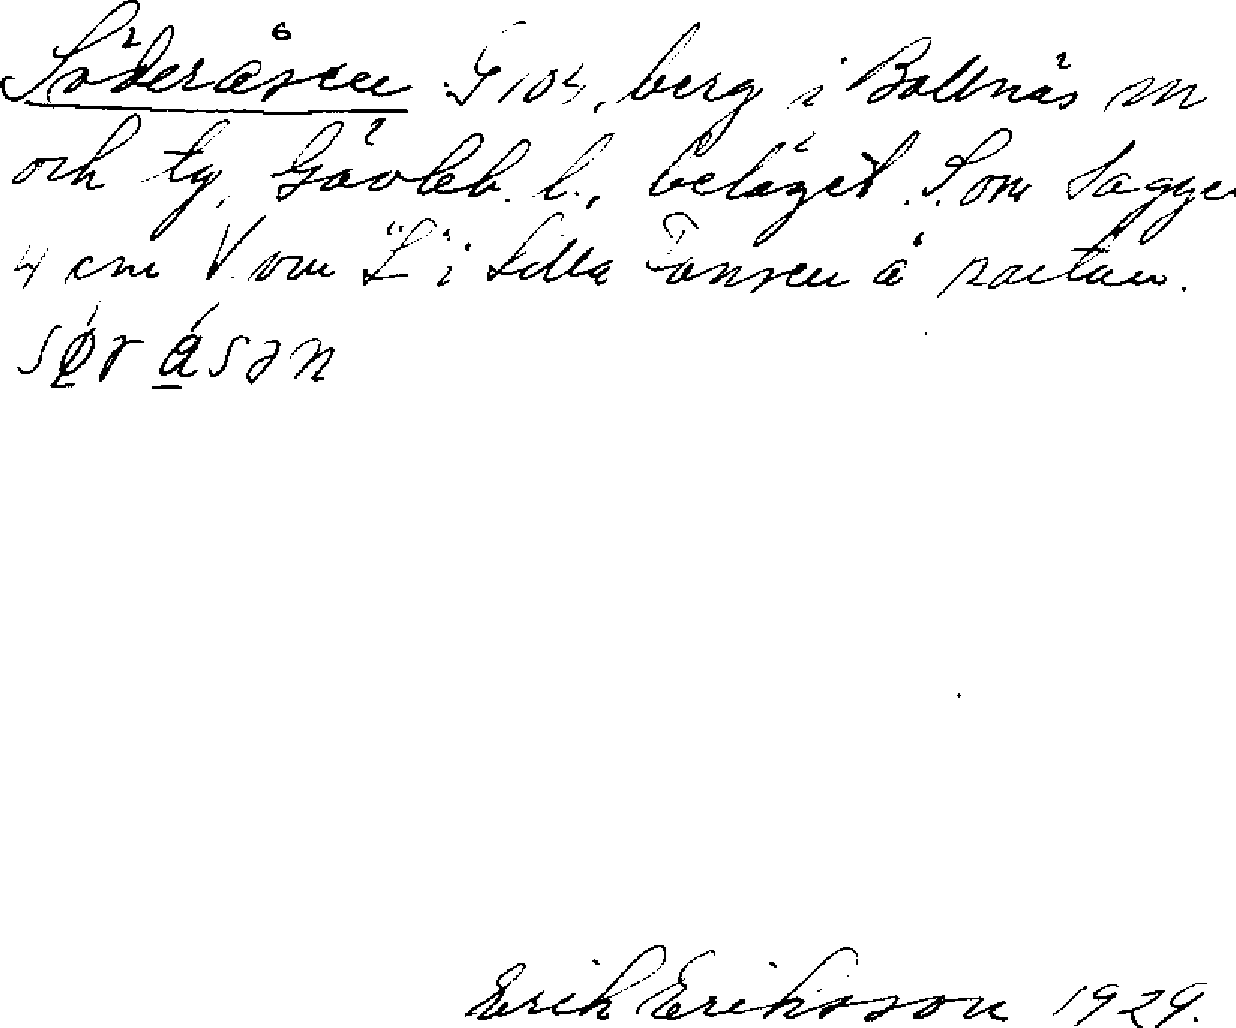 Söderåsen G 104, berg i Bollnäs sn
och tg, Gävleb. l., beläget S. om Sagge
4 cm V. om "L" i Lilla Tansen å kartan.
søråsən
Erik Eriksson 1929.